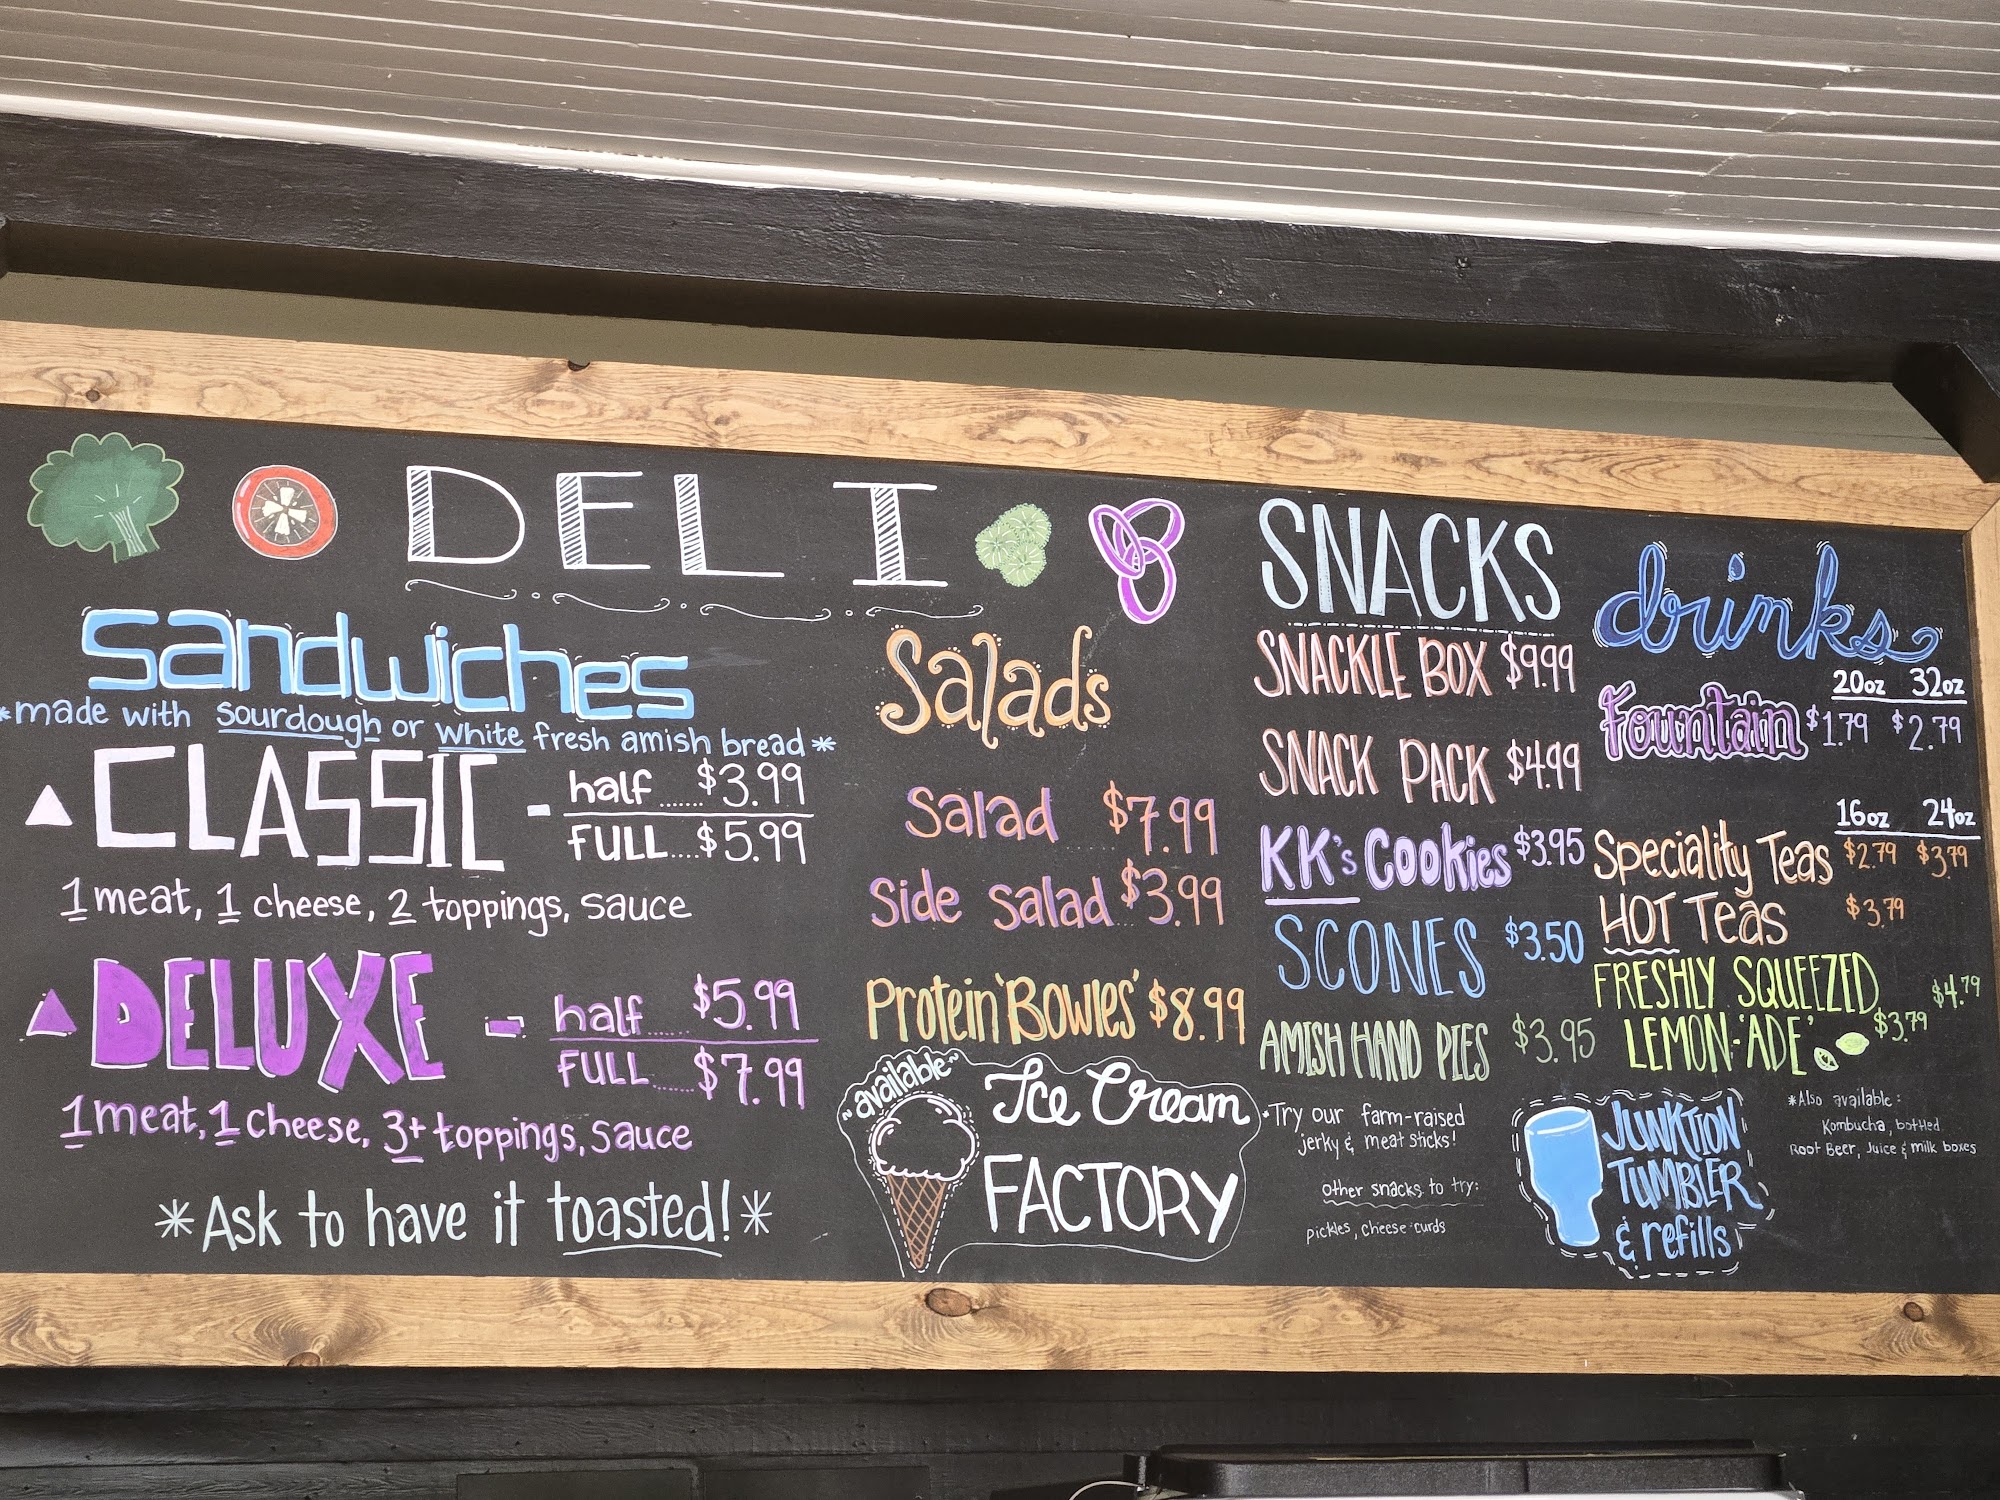 DELI
sandwiches
*made with sourdough or white fresh amish bread*
▲ CLASSIC - half ...... $3.99
FULL .... $5.99
1 meat, 1 cheese, 2 toppings, sauce
▲ DELUXE - half ...... $5.99
FULL ...... $7.99
1 meat, 1 cheese, 3+ toppings, sauce
*Ask to have it toasted!*
Salads
Salad $7.99
Side Salad $3.99
Protein 'Bowles' $8.99
~available~
Ice Cream
FACTORY
SNACKS
SNACKLE BOX $9.99
SNACK PACK $4.99
KK's Cookies $3.95
SCONES $3.50
AMISH HAND PIES $3.95
•Try our farm-raised
jerky & meat sticks!
other snacks to try:
pickles, cheese curds
drinks
20oz 32oz
Fountain $1.79 $2.79
16oz 24oz
Speciality Teas $2.79 $3.79
HOT Teas $3.79
FRESHLY SQUEEZED
LEMON-'ADE' $3.79 $4.79
JUNKTION
TUMBLER
& refills
*Also available:
Kombucha, bottled
Root Beer, Juice & milk boxes